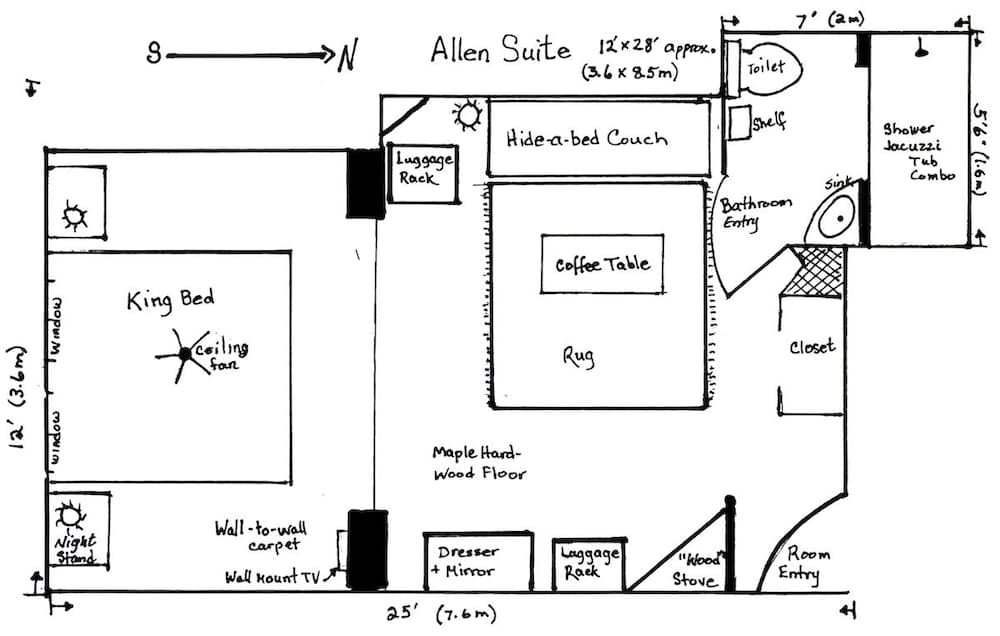 7' (2m)
S N
Allen Suite
12'x28' approx.
(3.6 x 8.5m)
Toilet
Shelf
Shower
Jacuzzi
Tub
Combo
5'6" (1.6m)
Hide-a-bed Couch
Luggage
Rack
Sink
Bathroom
Entry
Coffee Table
King Bed
Ceiling
fan
Window
Window
12' (3.6m)
Rug
Closet
Maple Hard-
Wood Floor
Night
Stand
Wall-to-wall
carpet
Wall Mount TV
Dresser
+ Mirror
Luggage
Rack
"Wood"
Stove
Room
Entry
25' (7.6m)